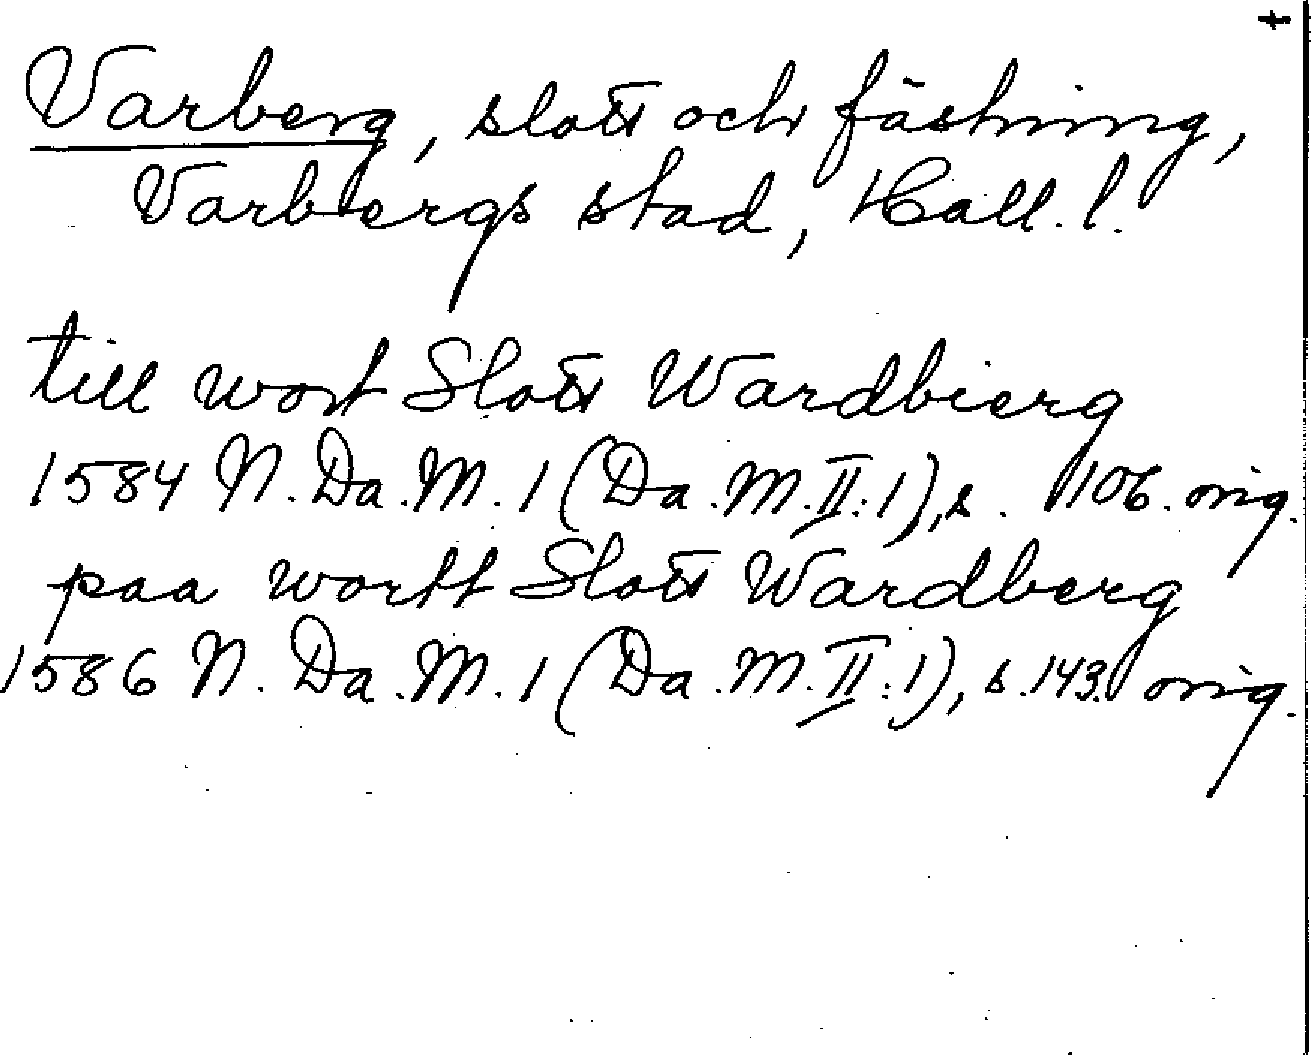 Varberg, slott och fästning,
Varbergs stad, Hall. l.
till wort Slott Wardbierg
1584 N. Da. M. 1 (Da. M. II: 1), s. 106. orig.
paa wortt Slott Wardberg
1586 N. Da. M. 1 (Da. M. II: 1), s. 143. orig.